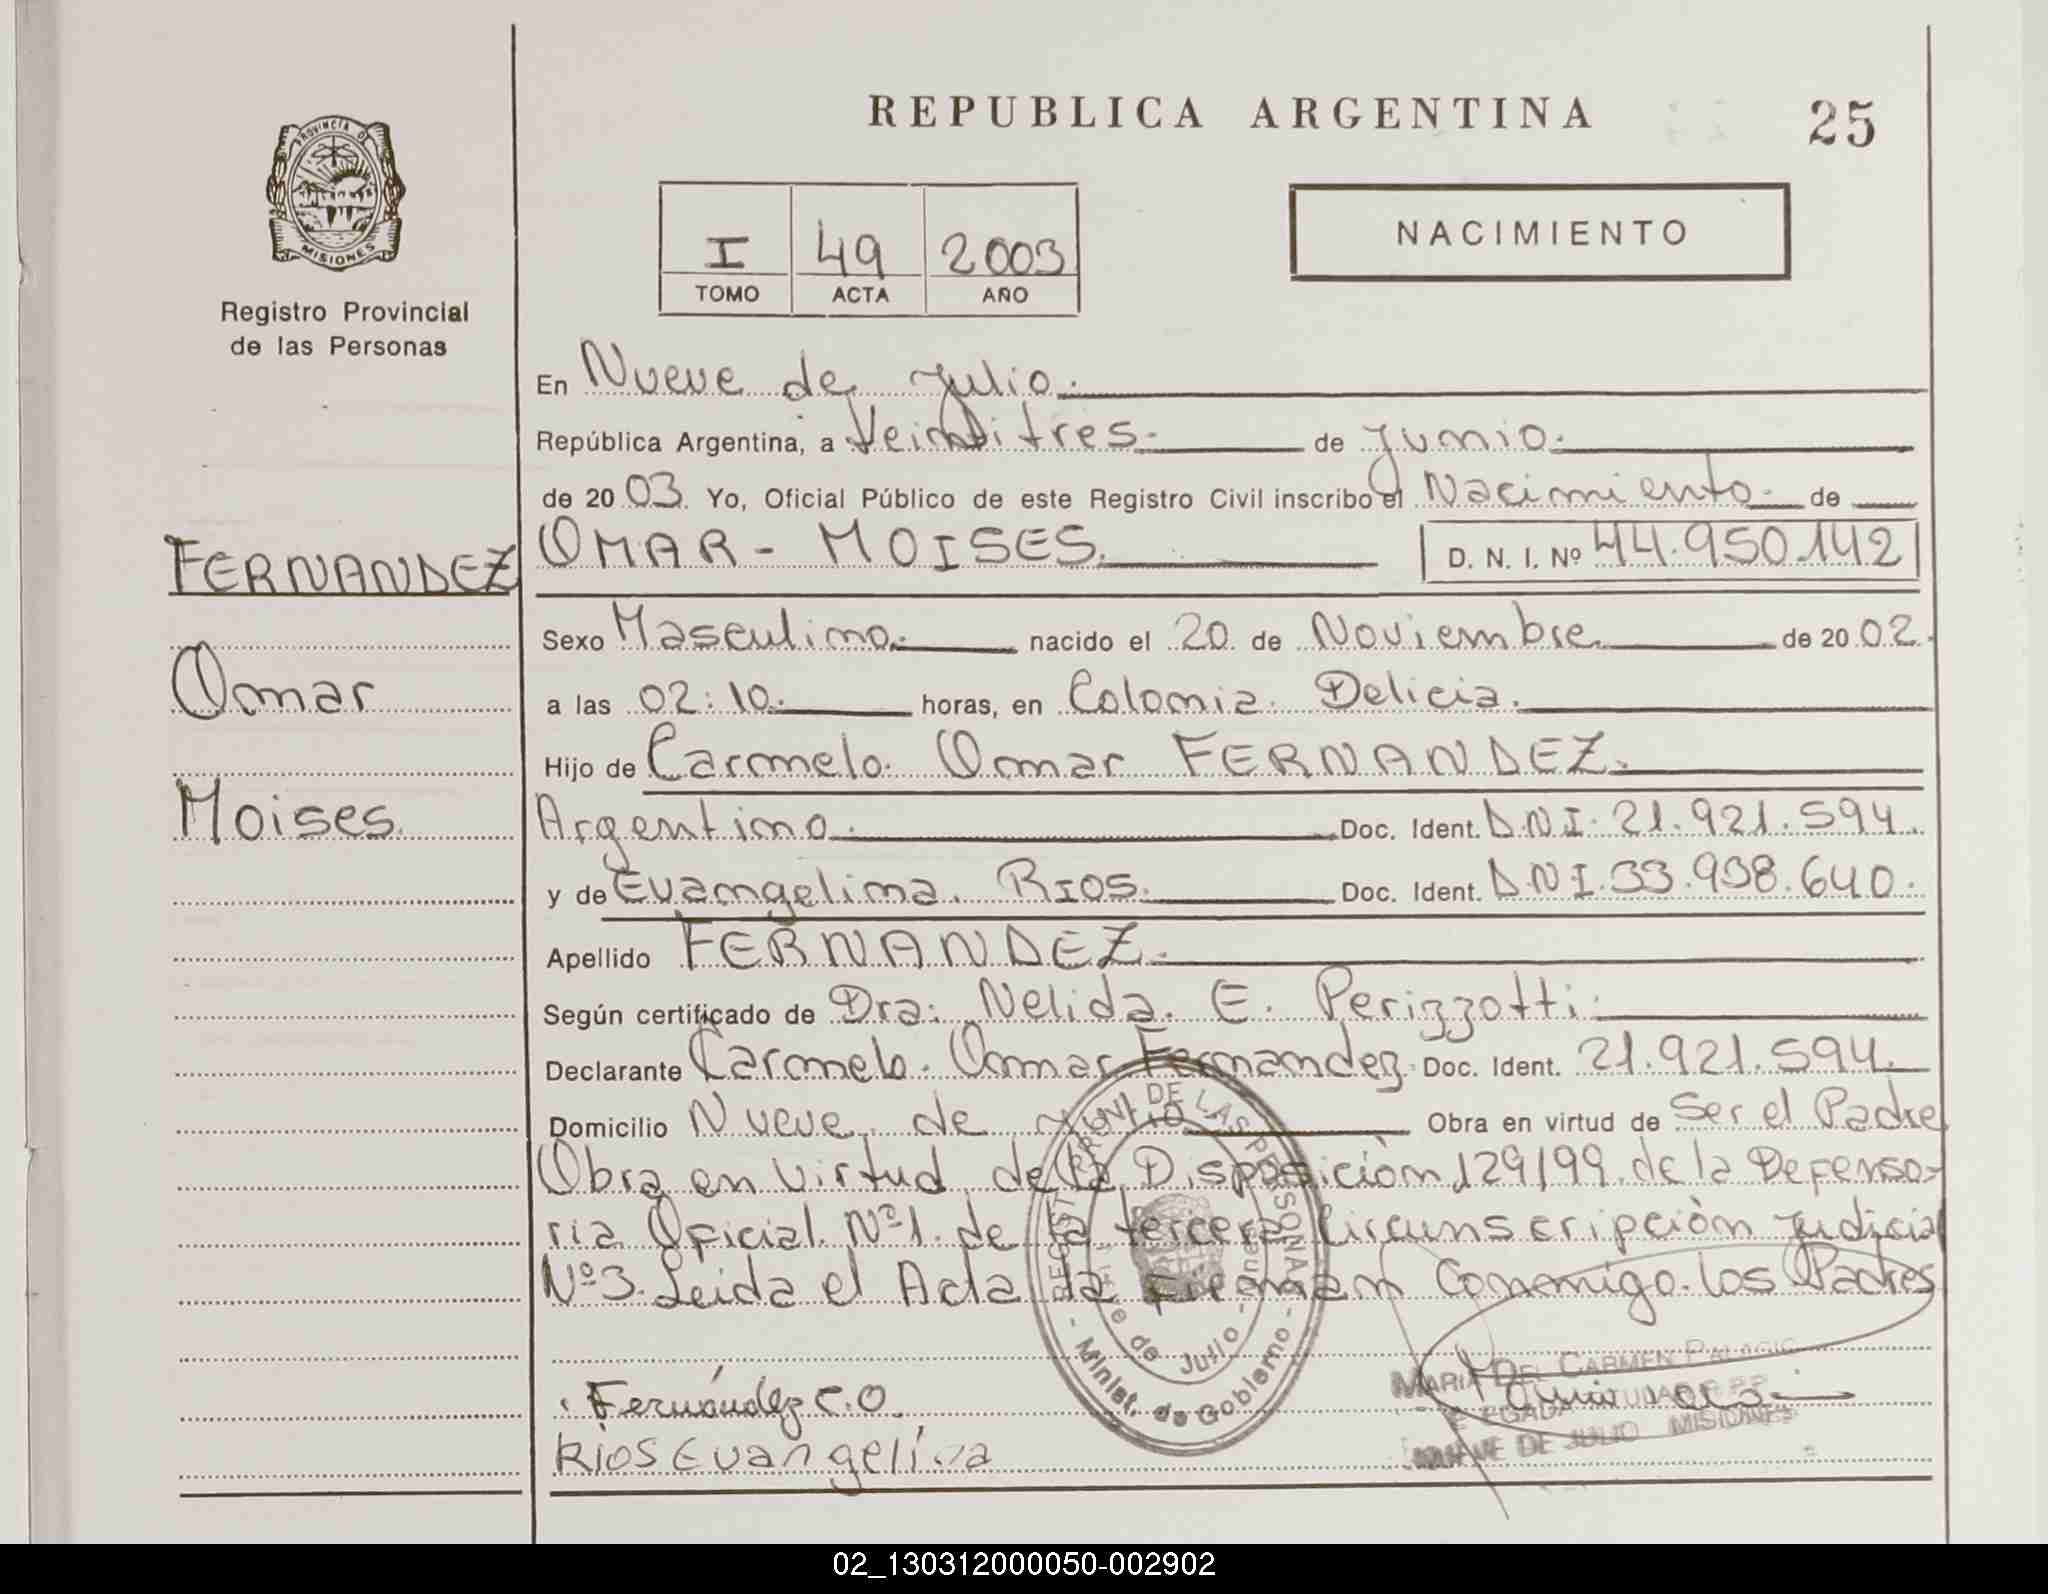 REPUBLICA ARGENTINA
25
PROVINCIA DE
MISIONES
Registro Provincial
de las Personas
I 49 2003
TOMO ACTA AÑO
NACIMIENTO
En Nueve de Julio.
República Argentina, a Veintitres. de Junio.
de 20 03. Yo, Oficial Público de este Registro Civil inscribo el Nacimiento. de
FERNANDEZ
OMAR - MOISES. D. N. I. Nº 44.950.142
Sexo Masculino. nacido el 20 de Noviembre. de 20 02.
Omar
a las 02:10. horas, en Colonia Delicia.
Hijo de Carmelo Omar FERNANDEZ.
Moises
Argentino. Doc. Ident. D.N.I. 21.921.594.
y de Evangelina. RIOS. Doc. Ident. D.N.I. 33.938.640.
Apellido FERNANDEZ.
Según certificado de Dra: Nelida. E. Perizzotti.
Declarante Carmelo. Omar Fernandez. Doc. Ident. 21.921.594.
Domicilio Nueve de Julio Obra en virtud de Ser el Padre
Obra en virtud de la Disposición 129/99 de la Defenso-
ria Oficial Nº1. de la tercera Circunscripción Judicial
Nº3. Leida el Acta la Firman Conmigo. los Padres
Fernández C.O.
Rios Evangelina
DE LAS PERSONAS
Nueve de Julio - Misiones
- Minist. de Gobierno -
MARIA DEL CARMEN PALACIO
DELEGADA TITULAR R.P.P.
NUEVE DE JULIO MISIONES
02_130312000050-002902